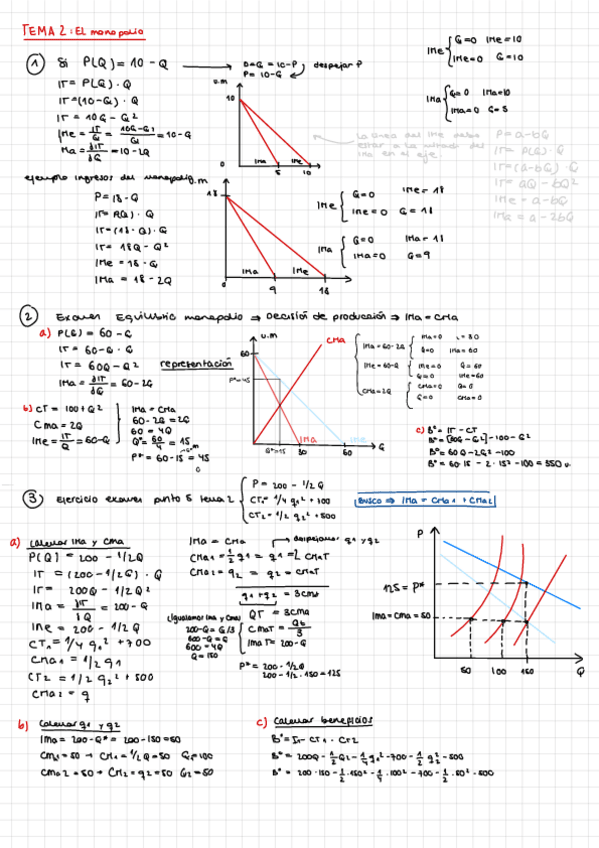 TEMA 2: El monopolio
① Si P(Q) = 10 - Q → Despejar P
P = 10-Q
IT = P(Q) · Q
IT = (10-Q) · Q
IT = 10Q - Q²
IMe = IT/Q = 10Q-Q²/Q = 10-Q
Ma = dIT/dQ = 10-2Q
u.m
10
0
IMa IMe
5 10
IMe { Q=0 IMe=10
IMe=0 Q=10
IMa { Q=0 IMa=10
IMa=0 Q=5
P = a-bQ
IT = P(Q) · Q
IT = (a-bQ) · Q
IT = aQ - bQ²
IMe = a-bQ
IMa = a-2bQ
ejemplo ingresos del monopolio
P = 18-Q
IT = P(Q) · Q
IT = (18-Q) · Q
IT = 18Q - Q²
IMe = 18-Q
IMa = 18-2Q
u.m
18
0
IMa IMe
9 18
IMe { Q=0 IMe=18
IMe=0 Q=18
IMa { Q=0 IMa=18
IMa=0 Q=9
② Examen Equilibrio monopolio ⇒ Decisión de producción ⇒ IMa = CMa
a) P(Q) = 60-Q
IT = 60-Q · Q
IT = 60Q - Q²
IMa = dIT/dQ = 60-2Q
representación
b) CT = 100+Q²
Cma = 2Q
IMe = IT/Q = 60-Q
IMa = CMa
60-2Q = 2Q
60 = 4Q
Q* = 60/4 = 15
P* = 60-15 = 45
u.m
CMa
60
P*=45
Q*=15 30 IMa 60 IMe Q
IMa = 60-2Q
IMe = 60-Q
CMa = 2Q
c) B° = IT - CT
B° = [60Q-Q²] - 100 - Q²
B° = 60Q - 2Q² - 100
B° = 60·15 - 2·15² - 100 = 350 u.
③ ejercicio examen punto 5 tema 2 { P = 200 - 1/2Q
CT₁ = 1/4 q₁² + 100
CT₂ = 1/2 q₂² + 500
BUSCO ⇒ IMa = CMa1 + CMa2
a) Calcular IMa y CMa
P(Q) = 200 - 1/2Q
IT = (200 - 1/2Q) · Q
IT = 200Q - 1/2Q²
IMa = dIT/dQ = 200-Q
IMe = 200 - 1/2Q
CT₁ = 1/4 q₁² + 700
CMa1 = 1/2 q1
CT2 = 1/2 q₂² + 500
CMa2 = q
IMa = CMa → despejamos q1 y q2
CMa1 = 1/2 q1 = q1 = 2 CMaT
CMa2 = q2 = q2 = CMaT
q1 + q2 = 3CMaT
QT = 3CMa
Igualamos IMa y CMa
200-Q = Q/3
600-Q = Q
600 = 4Q
Q = 150
CMaT = Qt/3
IMaT = 200-Q
P* = 200 - 1/2Q
200 - 1/2 · 150 = 125
P
125 = P*
IMa = CMa = 50
50 100 150 Q
b) Calcular q1 y q2
IMa = 200-Q* = 200-150 = 50
CMa1 = 50 → CMa1 = 1/2Q = 50 Q1 = 100
CMa2 = 50 → CMa2 = q2 = 50 Q2 = 50
c) Calcular beneficios
B° = IT - CT1 - CT2
B° = 200Q - 1/2Q² - 1/4q₁² - 700 - 1/2q₂² - 500
B° = 200·150 - 1/2·150² - 1/4·100² - 700 - 1/2·50² - 500